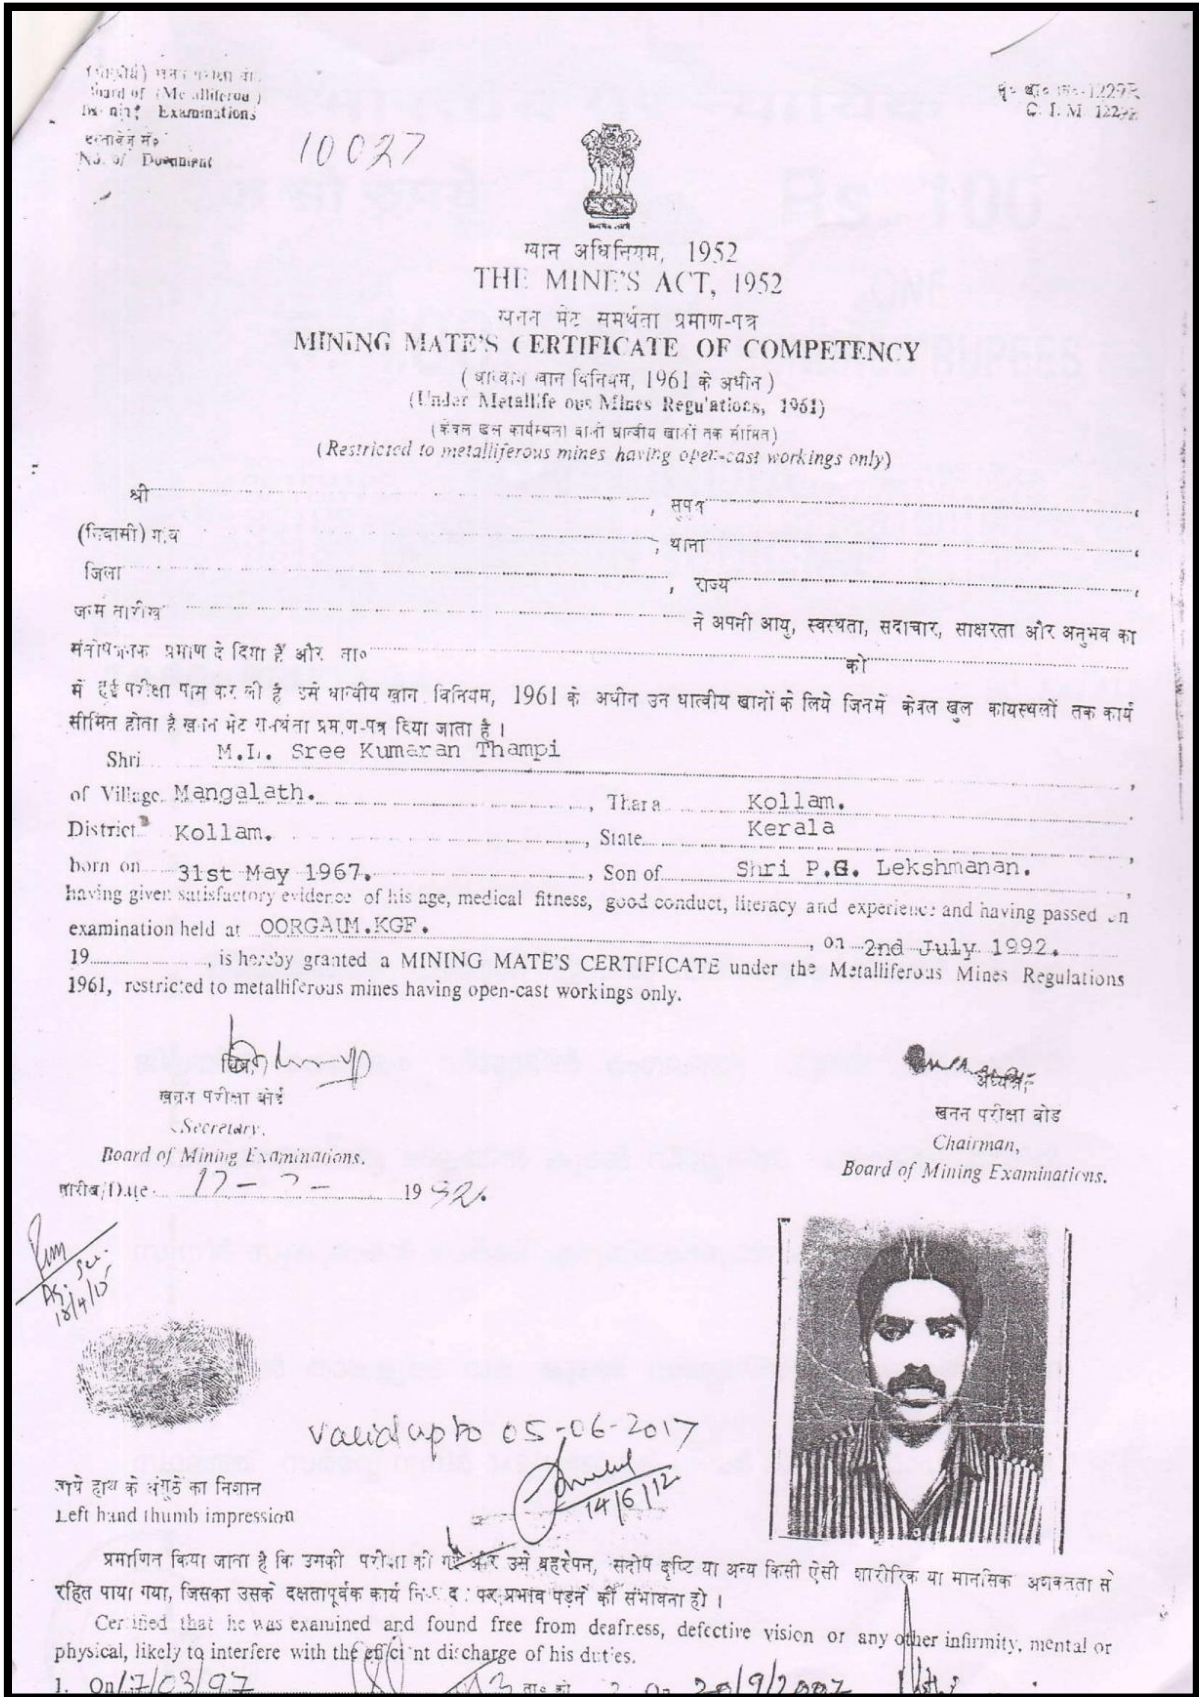 खनन परीक्षा बो
Board of (Metalliferou )
Examinations
दस्तावेज सं०
No. of Document 10027
C. I. M 1229
खान अधिनियम, 1952
THE MINE'S ACT, 1952
खनन मेट समर्थता प्रमाण-पत्र
MINING MATE'S CERTIFICATE OF COMPETENCY
( धात्वीय खान विनियम, 1961 के अधीन )
(Under Metallife ous Mines Regu'ations, 1961)
(Restricted to metalliferous mines having open-cast workings only)
श्री , सुपुत्र ,
(निवासी) गांव , थाना ,
जिला , राज्य ,
जन्म तारीख ने अपनी आयु, स्वस्थता, सदाचार, साक्षरता और अनुभव का
प्रमाण दे दिया है और ता० को
में हुई परीक्षा पास कर ली है उसे धात्वीय खान विनियम, 1961 के अधीन उन धात्वीय खानों के लिये जिनमें केवल खुल कार्यस्थलों तक कार्य
सीमित होता है खनन मेट प्रमाण-पत्र दिया जाता है ।
Shri M.L. Sree Kumaran Thampi ,
of Village Mangalath. , Thana Kollam.
District Kollam. , State Kerala ,
born on 31st May 1967. , Son of Shri P.G. Lekshmanan. ,
having given satisfactory evidence of his age, medical fitness, good conduct, literacy and experience and having passed an
examination held at OORGAUM.KGF. , on 2nd July 1992.
19 , is hereby granted a MINING MATE'S CERTIFICATE under the Metalliferous Mines Regulations
1961, restricted to metalliferous mines having open-cast workings only.
खनन परीक्षा बोर्ड
Secretary.
Board of Mining Examinations.
तारीख/Date 1992.
अध्यक्ष,
खनन परीक्षा बोर्ड
Chairman,
Board of Mining Examinations.
18/4/15
valid upto 05-06-2017
14/6/12
बायें हाथ के अंगूठे का निशान
Left hand thumb impression
प्रमाणित किया जाता है कि उसकी परीक्षा की गई और उसे बहरेपन, सदोष दृष्टि या अन्य किसी ऐसी शारीरिक या मानसिक अशक्तता से
रहित पाया गया, जिसका उसके दक्षतापूर्वक कार्य पर प्रभाव पड़ने की संभावना हो ।
Certified that he was examined and found free from deafness, defective vision or any other infirmity, mental or
physical, likely to interfere with the efficient discharge of his duties.
1. On 17/03/97 ता० को 2. On 20/9/2007